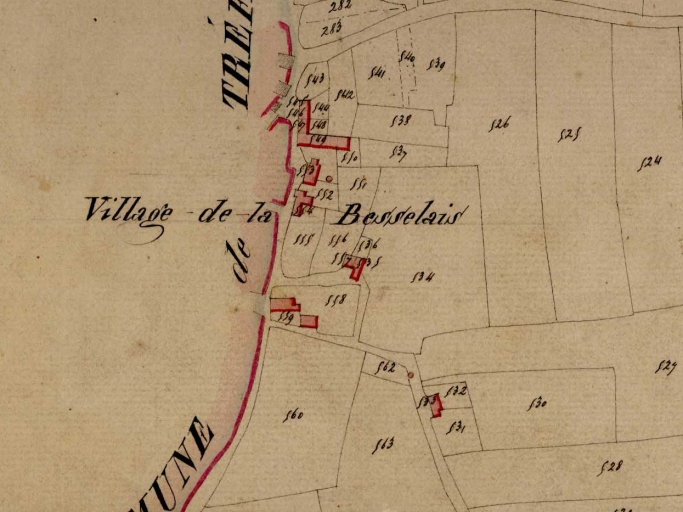 282
283
TRÉF
543
542
541
540
539
545
546
547
544
548
549
538
526
525
524
550
537
553
551
552
554
Village de la Besselais
555
556
536
557
535
534
de
558
559
562
529
533
532
531
530
560
563
528
MUNE